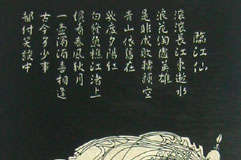 臨江仙
滾滾長江東逝水
浪花淘盡英雄
是非成敗轉頭空
青山依舊在
幾度夕陽紅
白髮漁樵江渚上
慣看春風秋月
一壺濁酒喜相逢
古今多少事
都付笑談中